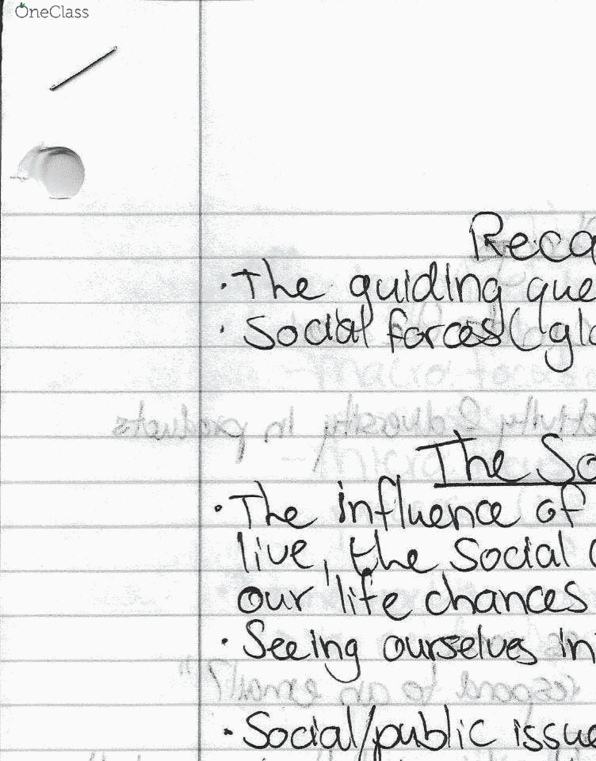 OneClass
Reca
· The guiding que
· Social forces (glo
The So
· The influence of
live, the social
our life chances
· Seeing ourselves in
· Social/public issue